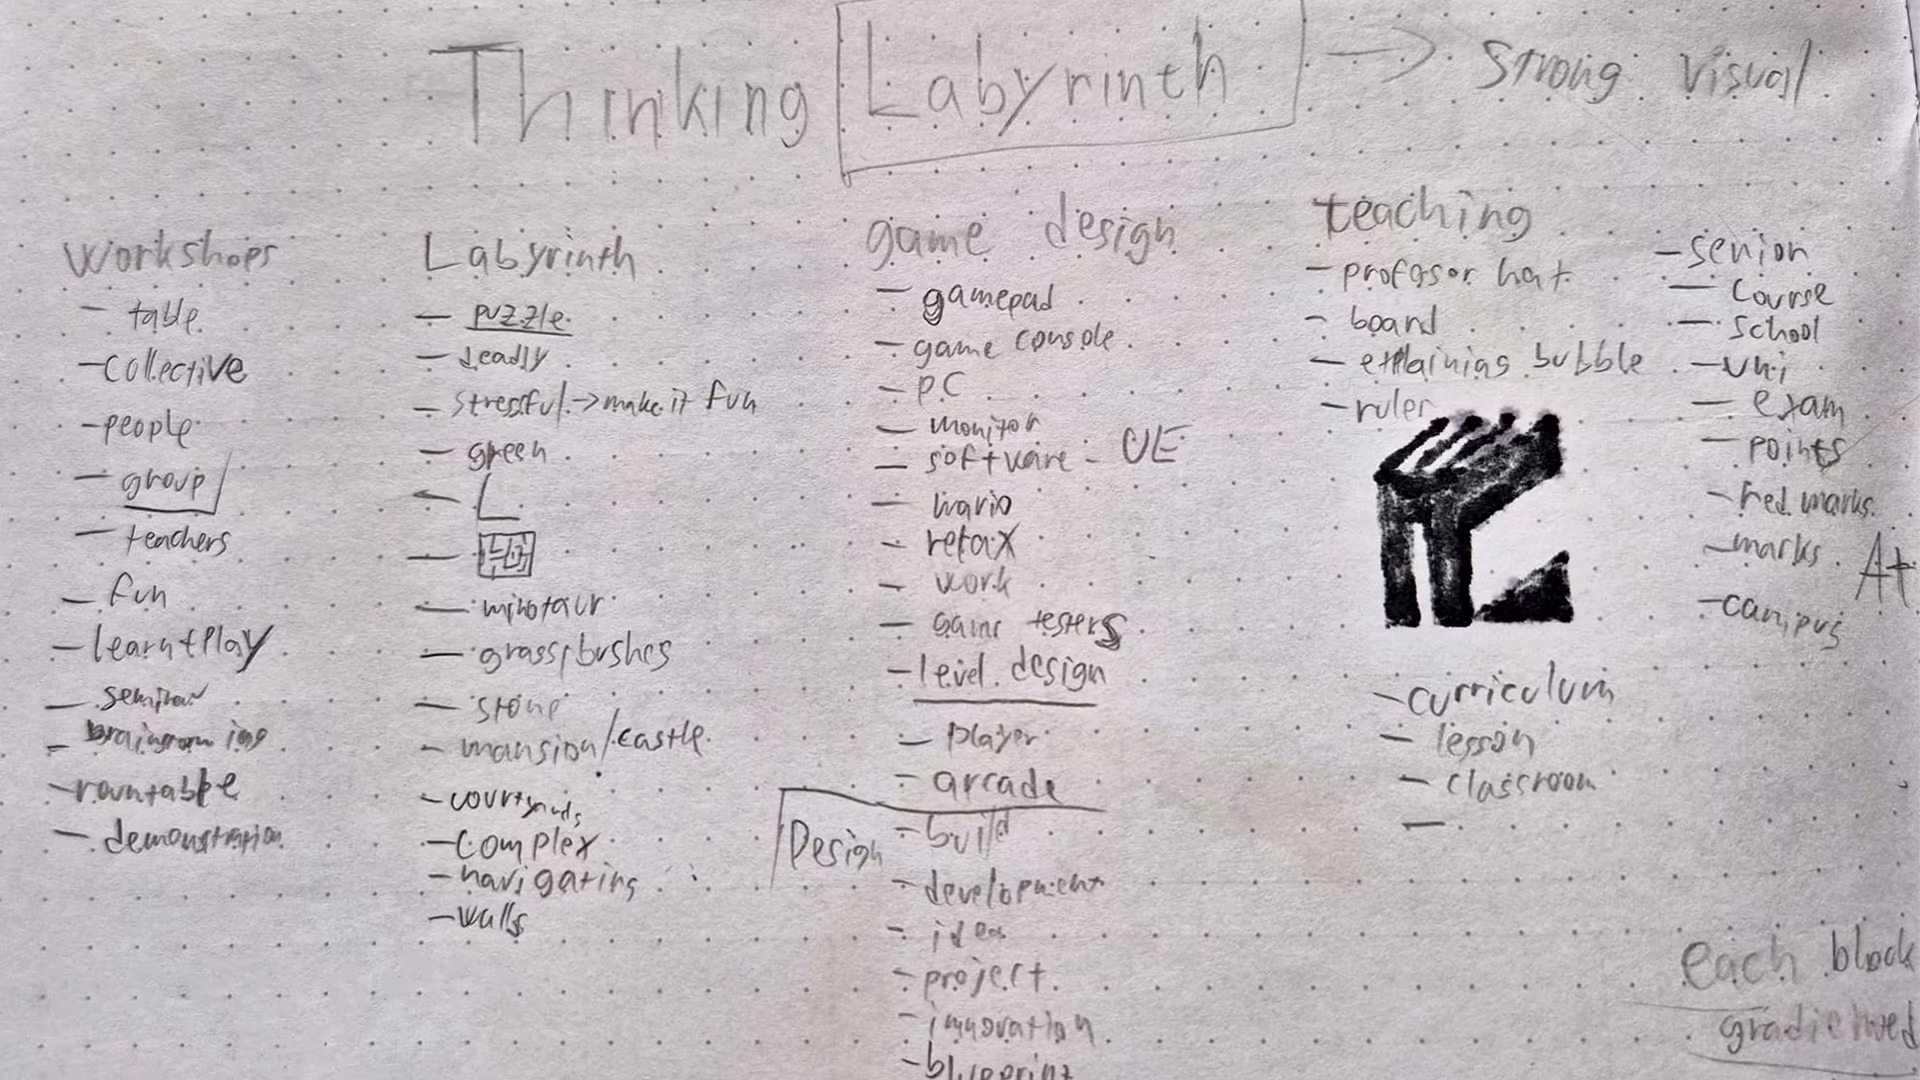 Thinking Labyrinth → strong visual
Workshops
- table
- collective
- people
- group
- teachers
- fun
- learn+play
- seminar
- rountable
- demonstration
Labyrinth
- puzzle
- deadly
- stressful → make it fun
- green
- L
- minotaur
- grass/bushes
- stone
- mansion/castle
- courtyards
- complex
- navigating
- walls
game design
- gamepad
- game console
- PC
- monitor
- software - UE
- mario
- relax
- work
- game testers
- level design
- player
- arcade
Design
- build
- development
- idea
- project
- innovation
- blueprint
teaching
- profosor hat
- board
- explaining bubble
- ruler
- curriculum
- lesson
- classroom
-
- senior
- course
- school
- uni
- exam
- points
- red marks
- marks A+
- campus
each block